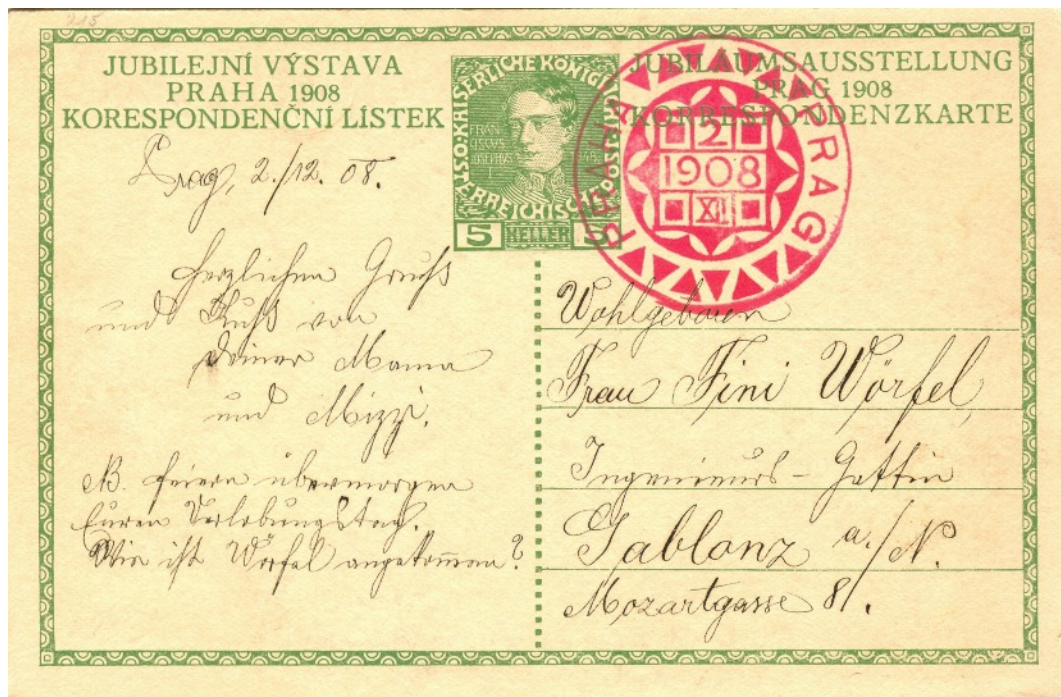 215
JUBILEJNÍ VÝSTAVA
PRAHA 1908
KORESPONDENČNÍ LÍSTEK
ÖSTERREICHISCHE POST KAISERLICHE KÖNIGL
FRAN
CISCUS
JOSEPHUS
I
48
5 HELLER 5
JUBILÄUMSAUSSTELLUNG
PRAG 1908
KORRESPONDENZKARTE
PRAHA PRAG
2
1908
XII
Prag, 2./12. 08.
Herzlichen Gruß
und Kuß von
Deiner Mama
und Mizzi.
NB. feiern übermorgen
Euren Verlobungstag.
Wie ist Wörfel angekommen?
Wohlgeboren
Frau Fini Wörfel,
Ingenieurs-Gattin
Gablonz a./N.
Mozartgasse 8/.